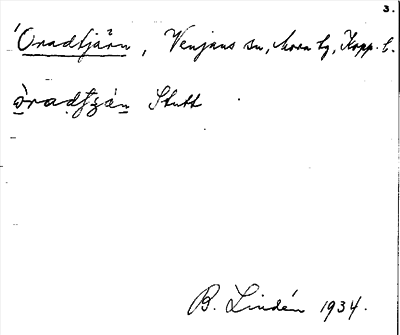 3.
Oradtjärn, Venjans sn, Mora tg, Kopp. l.
Slutt
B. Lindén 1934.